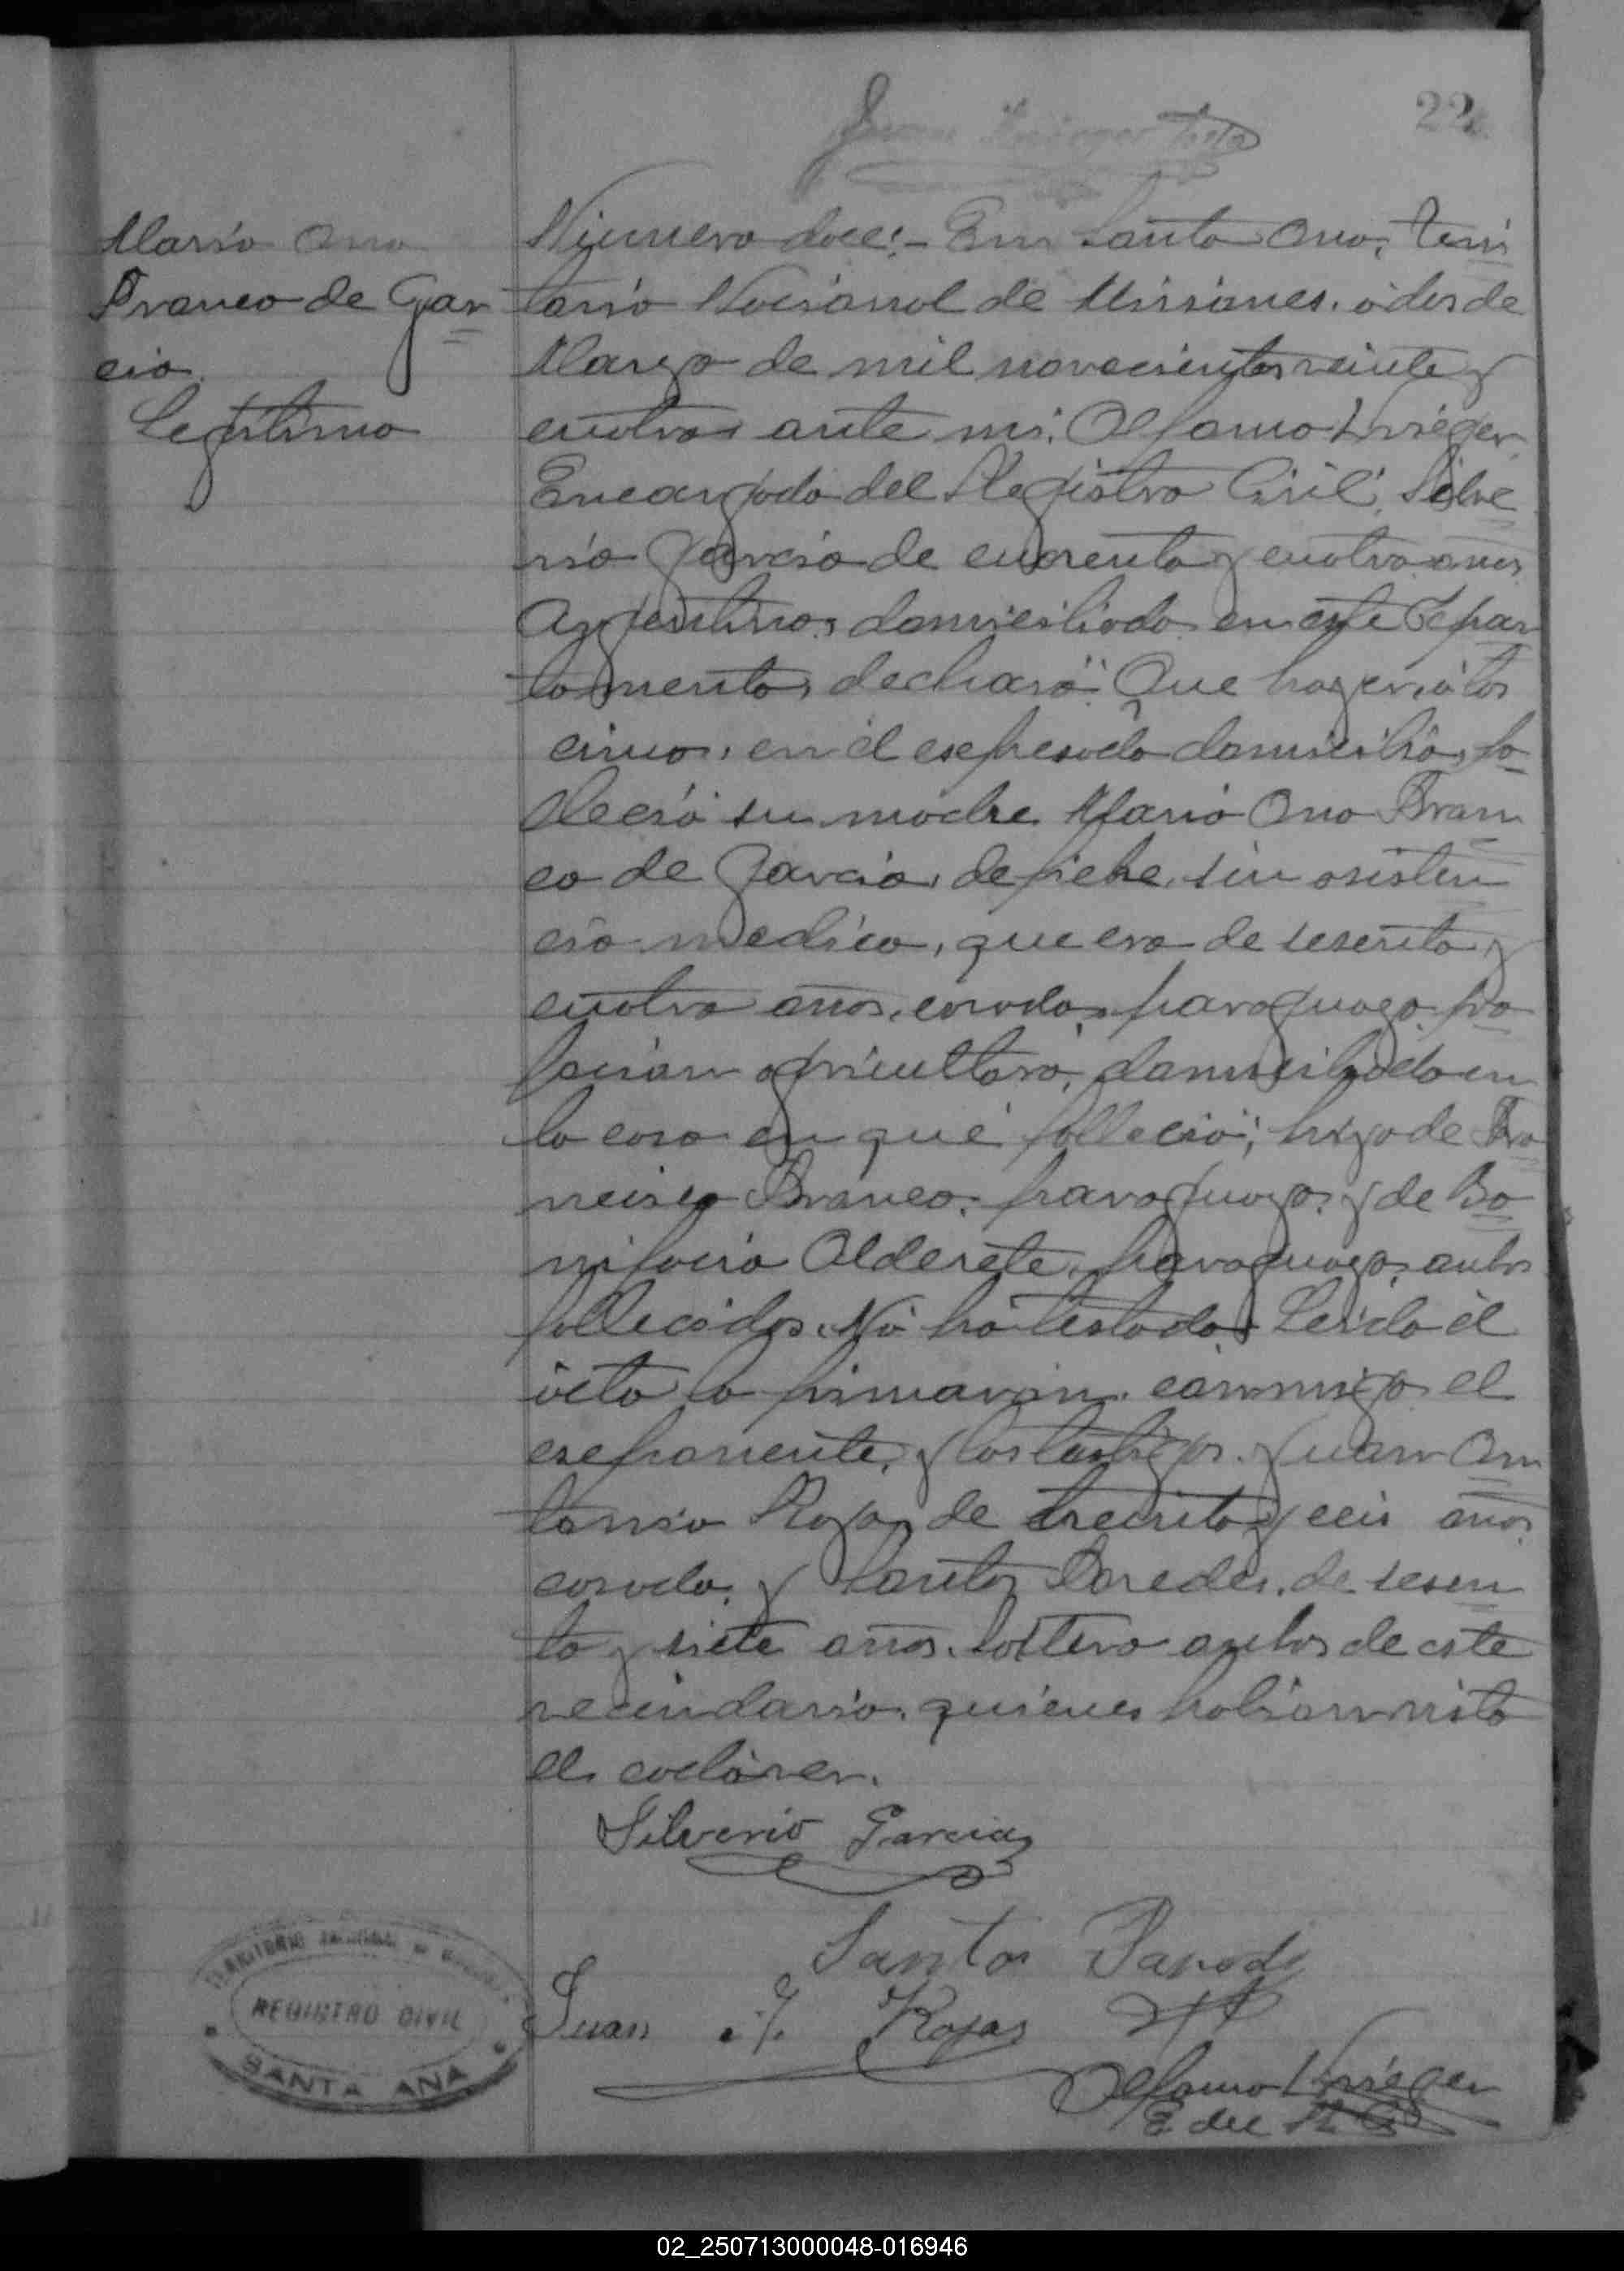 22
Maria Ana
Franco de Gar
cia
Legitimo
Numero doce:- En Santa Ana, terri
torio Nacional de Misiones. a dos de
Marzo de mil novecientos veinte y
cuatro, ante mi, Krieger
Encargado del Registro Civil, Silve
rio Garcia de cuarenta y cuatro años
Argentino, domiciliado en este Depar
tamento, declaró: Que hoy en a las
cinco, en el espresado domicilio, fa
lleció su madre Maria Ana Fran
co de Garcia, de fiebre, sin asisten
cia medica, que era de sesenta y
cuatro años, casada, paraguaya, pro
fecion agricultora, domiciliada en
la casa en que falleció; hija de Fra
ncisco Franco, paraguayo, y de Bo
nifacia Alderete, paraguaya, ambos
fallecidos. No há testado. Leida el
acta la firmaron conmigo el
esponente, y los testigos. Juan An
tonio Rojas de treinta y seis años
casado, y Santos Paredes, de sesen
ta y siete años, soltero ambos de este
vecindario, quienes habian visto
el cadáver.
Silverio Garcia
Santos
Juan A. Rojas
Krieger
E. del R. C.
TERRITORIO NACIONAL DE MISIONES
REGISTRO CIVIL
SANTA ANA
02_250713000048-016946